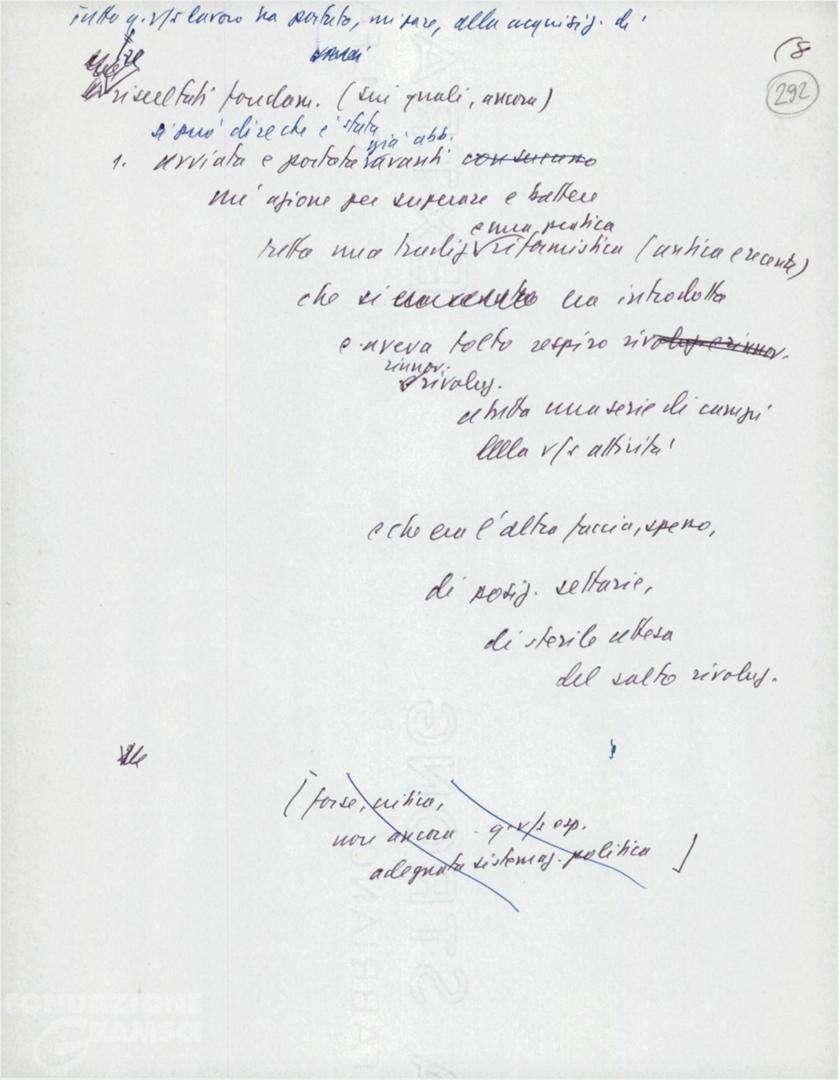 tutto q. v/s lavoro ha portato, mi pare, alla acquisiz. di
tre
(8
292
risultati fondam. (sui quali, ancora)
si può dire che è stata
già abb.
1. avviata e portata avanti
un'azione per superare e battere
e una pratica
tutta una tradiz. riformistica (antica e recente)
che si era introdotta
e aveva tolto respiro rivoluz. e rinnov.
rinnov.
e rivoluz.
a tutta una serie di campi
della v/s attività
e che era l'altra faccia, spesso,
di posiz. settarie,
di sterile attesa
del salto rivoluz.
[forse, critica,
non ancora - q. v/s esp.
adeguata sistemaz. politica]
FONDAZIONE
GRAMSCI
FABRIANO